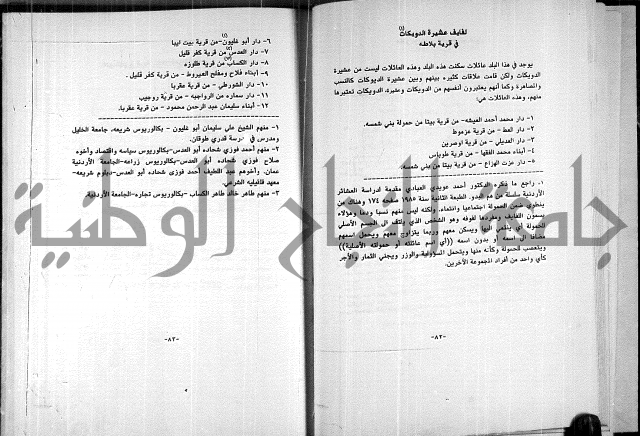 لفايف عشيرة الدويكات (١)
في قرية بلاطه
يوجد في هذا البلد عائلات سكنت هذه البلد وهذه العائلات ليست من عشيرة
الدويكات ولكن قامت علاقات كثيره بينهم وبين عشيرة الديوكات كالنسب
والمصاهرة وكما أنهم يعتبرون أنفسهم من الدويكات وعشيرة الدويكات تعتبرها
منهم. وهذه العائلات هي:
١- دار محمد أحمد الغيشه- من قرية بيتا من حمولة بني شمسه.
٢- دار العط - من قرية عزموط
٣- دار العديلي - من قرية اوصرين
٤- أبناء محمد الفقها - من قرية طوباس
٥- دار عزت الهزاع - من قرية بيتا من بني شمسه.
١- راجع ما ذكره الدكتور أحمد عويدي العبادي مقدمة لدراسة العشائر
الأردنية سلسلة من هم البدو. الطبعة الثانية سنة ١٩٨٥ صفحه ١٧٤ وهناك من
ينطوي ضمن الحمولة اجتماعيا وانتماء، ولكنه ليس منهم نسبا ودما وهؤلاء
يسمون اللفايف ومفردها لفوفه وهو الشخص الذي يلتف الى الجسم الأصلي
للحمولة أي ينتمي اليها ويسكن معهم وربما يتزاوج معهم ويحمل اسمهم
مضافا الى اسمه أو بدون اسمه ((أي اسم عائلته أو حمولته الأصلية))
ويتعصب للحمولة وكأنه منها ويتحمل المسؤولية والوزر ويجني الثمار والأجر
كأي واحد من أفراد المجموعة الآخرين.
-٨٢-
٦- دار أبو غليون (١)-من قرية بيت ايبا
٧- دار العدس (٢) من قرية كفر قليل
٨- دار الكساب (٣) من قرية طلوزه
٩- أبناء فلاح ومفلح العبروط - من قرية كفر قليل.
١٠- دار الشورطي - من قرية عقربا
١١- دار سماره من الرواجبه - من قرية روجيب
١٢- أبناء سليمان عبد الرحمن محمود - من قرية عقربا.
١- منهم الشيخ علي سليمان أبو غليون - بكالوريوس شريعه، جامعة الخليل
ومدرس في مدرسة قدري طوقان.
٢- منهم أحمد فوزي شحاده أبو العدس-بكالوريوس سياسه واقتصاد وأخوه
صلاح فوزي شحاده أبو العدس-بكالوريوس زراعه-الجامعة الأردنية
عمان. وأخوهم عبد اللطيف أحمد فوزي أبو العدس-دبلوم شريعه-
معهد قلقيليه الشرعي.
٣- منهم طاهر خالد طاهر الكساب -بكالوريوس تجاره-الجامعة الأردنية.
-٨٣-
جامعة النجاح الوطنية